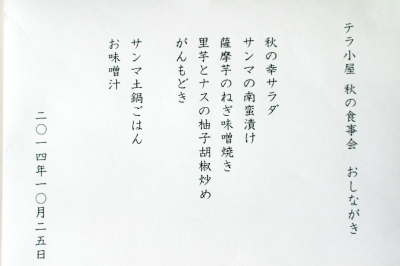 テラ小屋 秋の食事会 おしながき
秋の幸サラダ
サンマの南蛮漬け
薩摩芋のねぎ味噌焼き
里芋とナスの柚子胡椒炒め
がんもどき
サンマ土鍋ごはん
お味噌汁
二〇一四年一〇月二五日